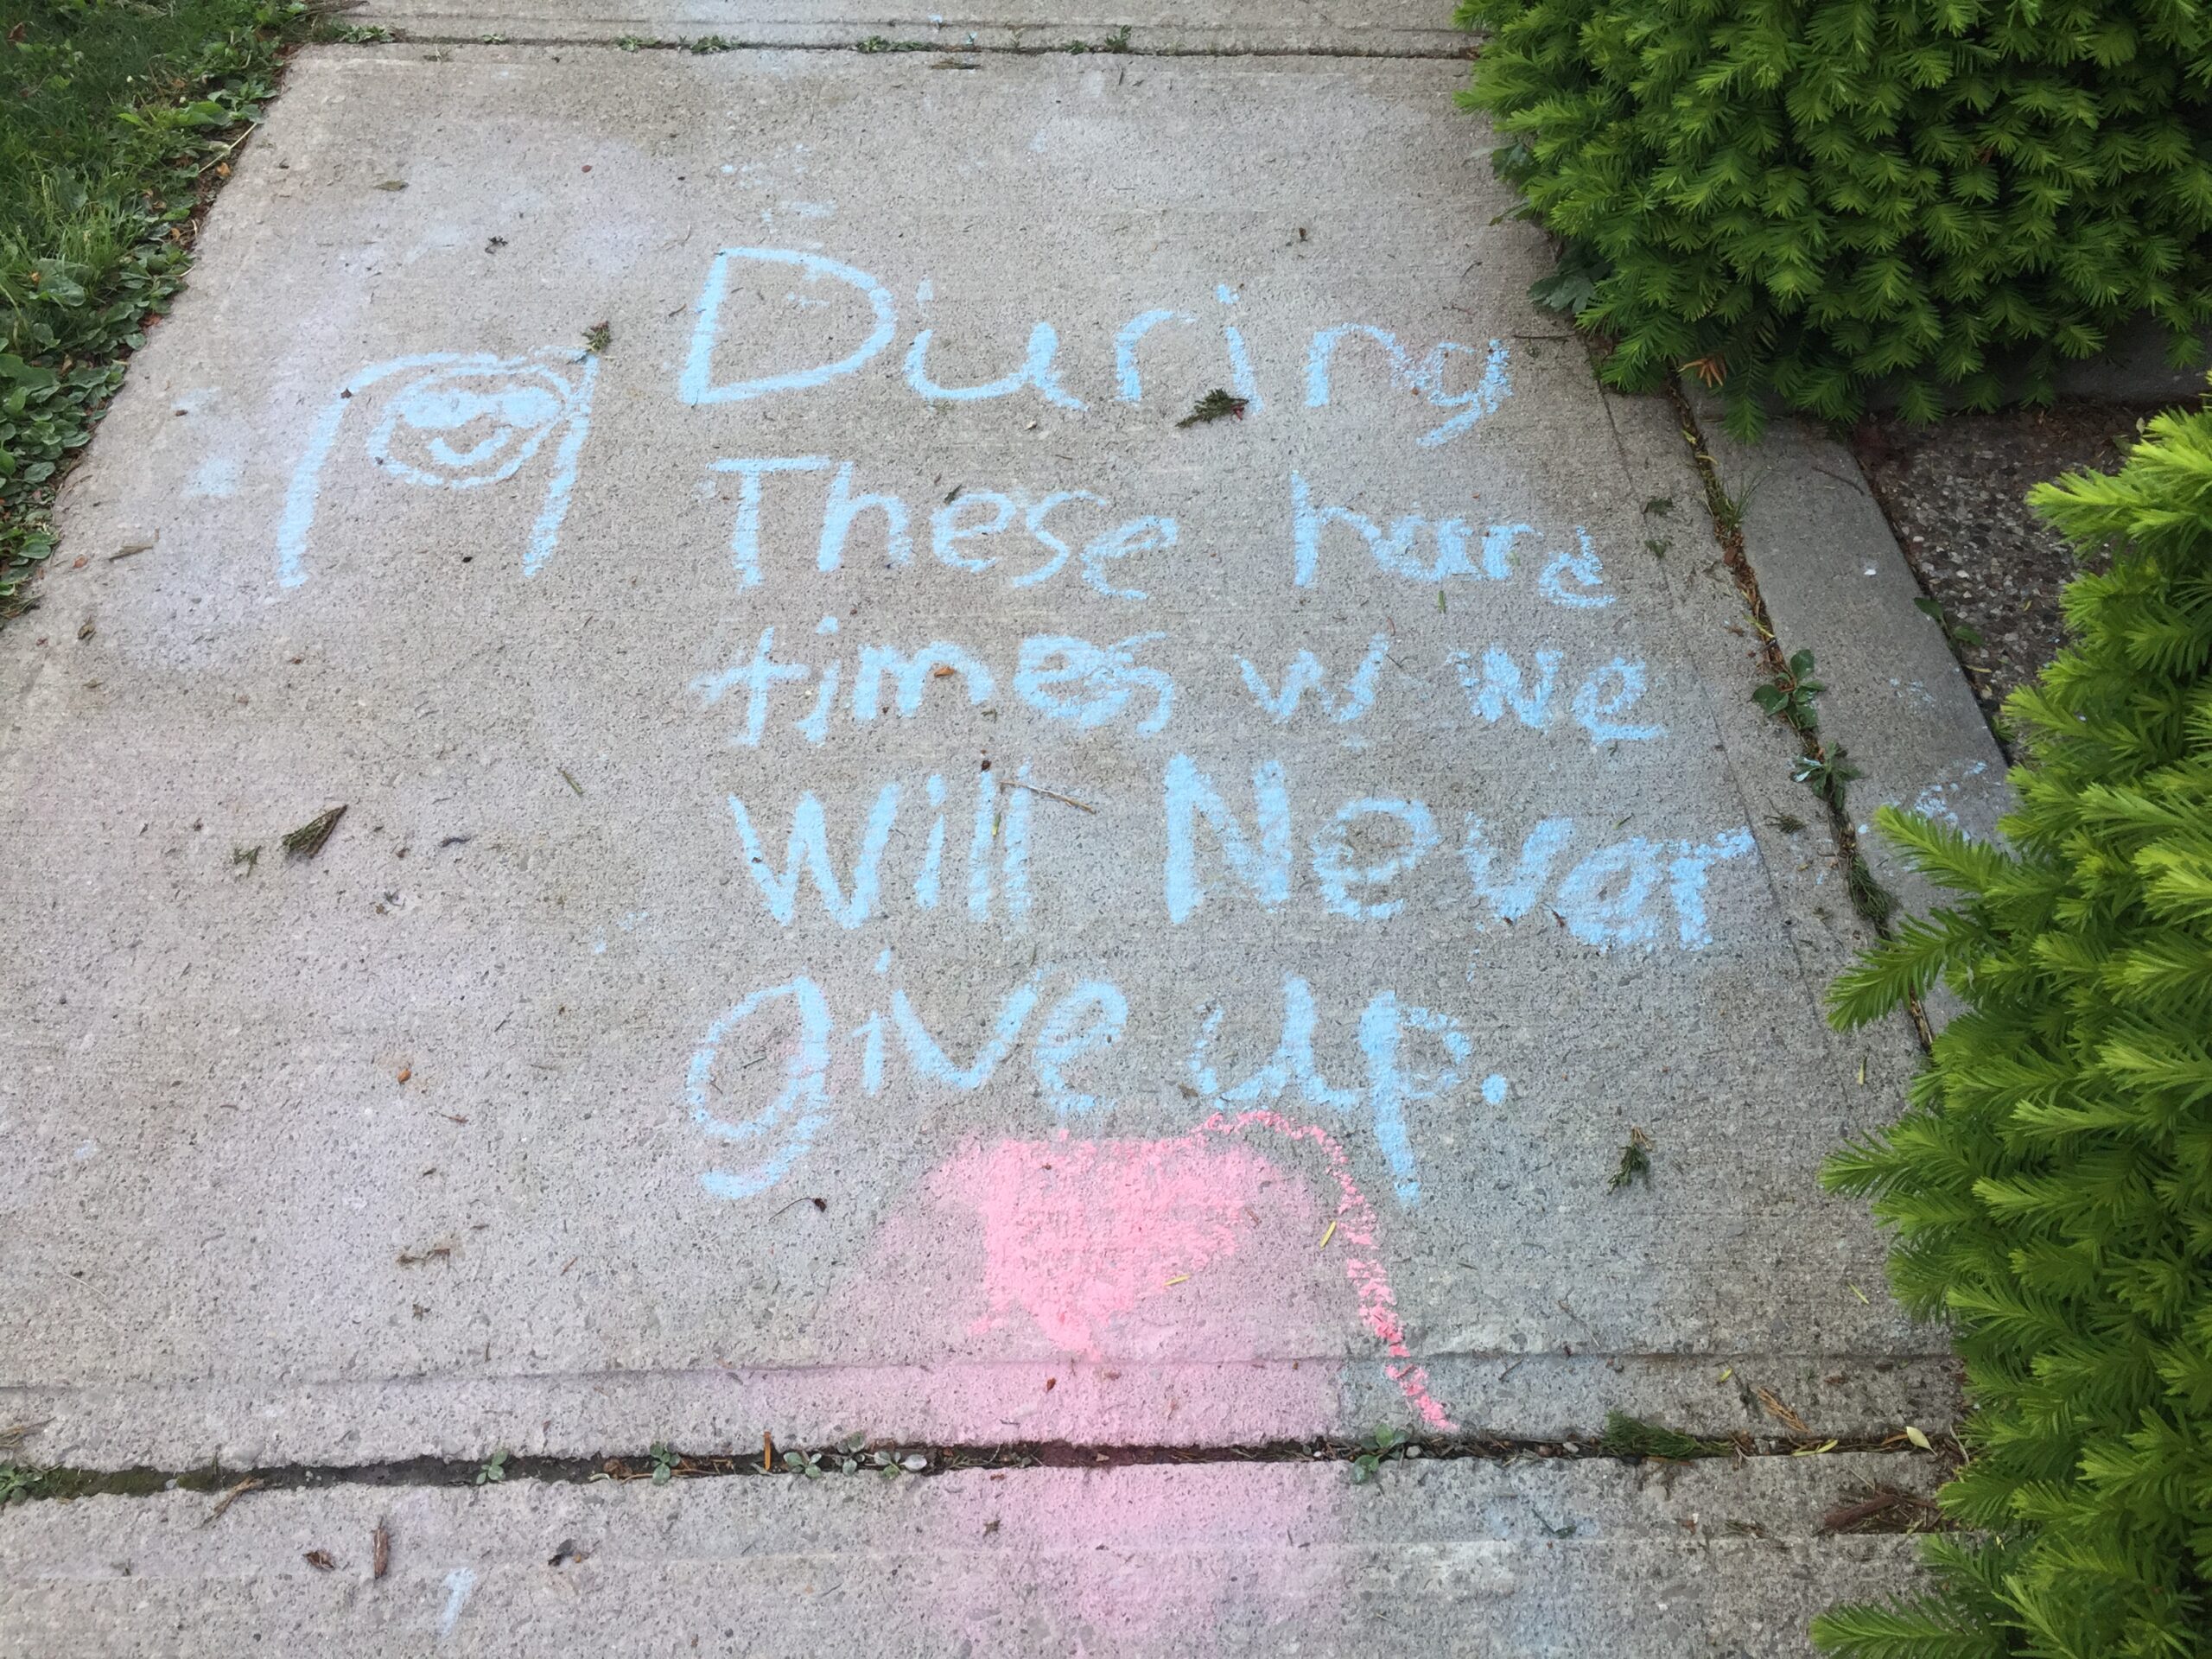 During
These hard
times w we
will Never
give up.